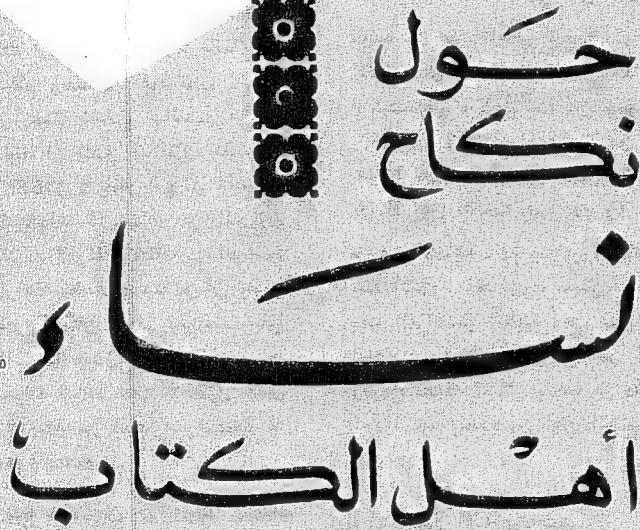 حَول
نكاح
نسَاء
أهْل الكتاب